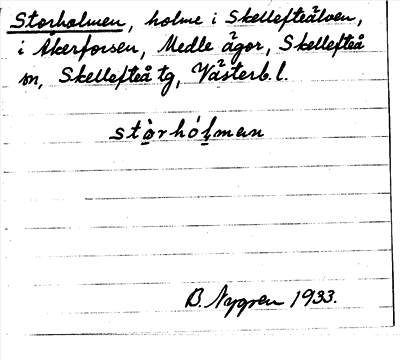 Storholmen, holme i Skellefteälven,
i Åkerforsen, Medle ägor, Skellefteå
sn, Skellefteå tg, Västerb. l.
stòrhólman
B. Nygren 1933.